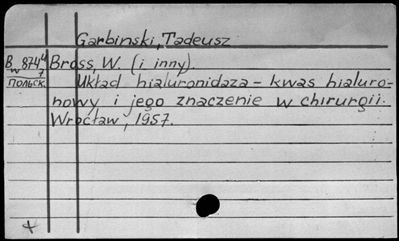 Garbinski, Tadeusz
B 874 4 Bross, W. (i inny).
w 7
польск. Układ hialuronidaza - kwas hialuro-
nowy i jego znaczenie w chirurgii.
Wrocław, 1957.
+